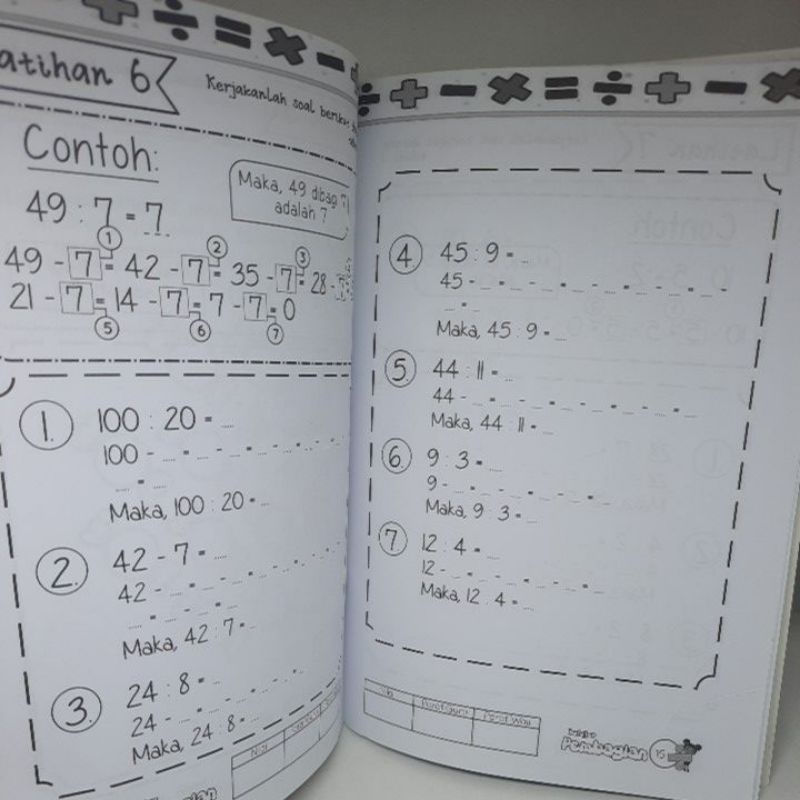 atihan 6
Kerjakanlah soal berikut
Contoh:
49 : 7 = 7
Maka, 49 dibagi 7
adalah 7
1 2 3
49 - 7 = 42 - 7 = 35 - 7 = 28 -
21 - 7 = 14 - 7 = 7 - 7 = 0
5 6 7
1. 100 : 20 = ...
100 - ... = ... - ... = ... - ... = ... - ...
... = ...
Maka, 100 : 20 = ...
2. 42 - 7 = ...
42 - ... = ... - ... = ... - ... = ... - ...
... = ... - ... = ...
Maka, 42 : 7 = ...
3. 24 : 8 = ...
24 - ... = ... - ... = ... - ... = ...
Maka, 24 : 8 = ...
Nilai
4. 45 : 9 = ...
45 - ... = ... - ... = ... - ... = ... - ... = ... - ...
... = ...
Maka, 45 : 9 = ...
5. 44 : 11 = ...
44 - ... = ... - ... = ... - ... = ... - ... = ...
Maka, 44 : 11 = ...
6. 9 : 3 = ...
9 - ... = ... - ... = ... - ... = ...
Maka, 9 : 3 = ...
7. 12 : 4 = ...
12 - ... = ... - ... = ... - ... = ...
Maka, 12 : 4 = ...
Nilai Paraf Guru Paraf Wali
Pembagian 15